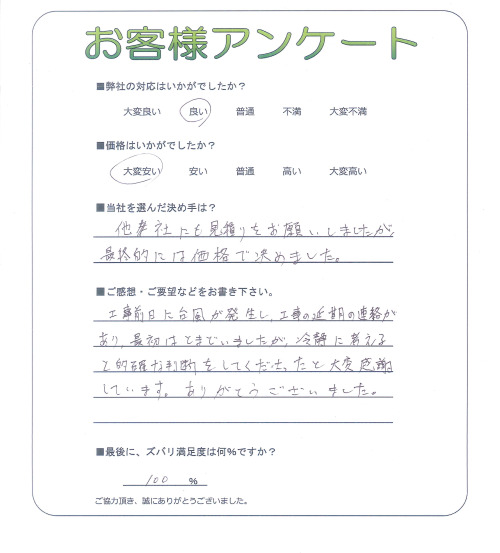 お客様アンケート
■弊社の対応はいかがでしたか？
大変良い 良い 普通 不満 大変不満
■価格はいかがでしたか？
大変安い 安い 普通 高い 大変高い
■当社を選んだ決め手は？
他業社にも見積りをお願いしましたが、
最終的には価格で決めました。
■ご感想・ご要望などをお書き下さい。
工事前日に台風が発生し、工事の延期の連絡が
あり、最初はとまどいましたが、冷静に考える
と的確な判断をしてくださったと大変感謝
しています。ありがとうございました。
■最後に、ズバリ満足度は何%ですか？
100 %
ご協力頂き、誠にありがとうございました。